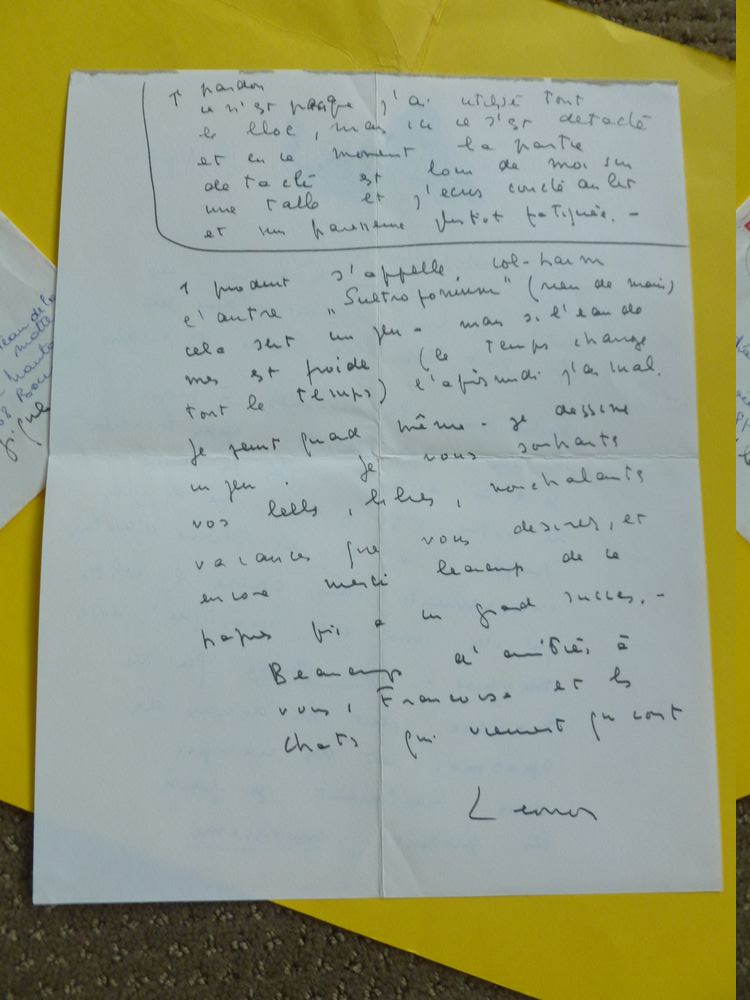 ↑ pardon
ce n'est pasque j'ai utilisé tout
le bloc, mais ici ce s'est detaché
et en ce moment la partie
detaché est loin de moi sur
une table et j'ecris couché au lit
et suis paresseuse plutot fatiguée. -
1 produit s'appelle, col-harm
l'autre "Sulfroponium" (rien de mais)
cela sent un peu - mais si l'eau de
mer est froide (le temps change
tout le temps) l'après midi j'ai mal.
Je peint quand même - je dessine
un peu. Je vous souhaits
vos belles, libres, nonchalants
vacances que vous desires, et
encore merci beaucoup de ce
papier qui a un grand succes. -
Beaucoup d'amitiés à
vous, Françoise et les
chats qui viennent qui vont
Leonor
jean de la
haute